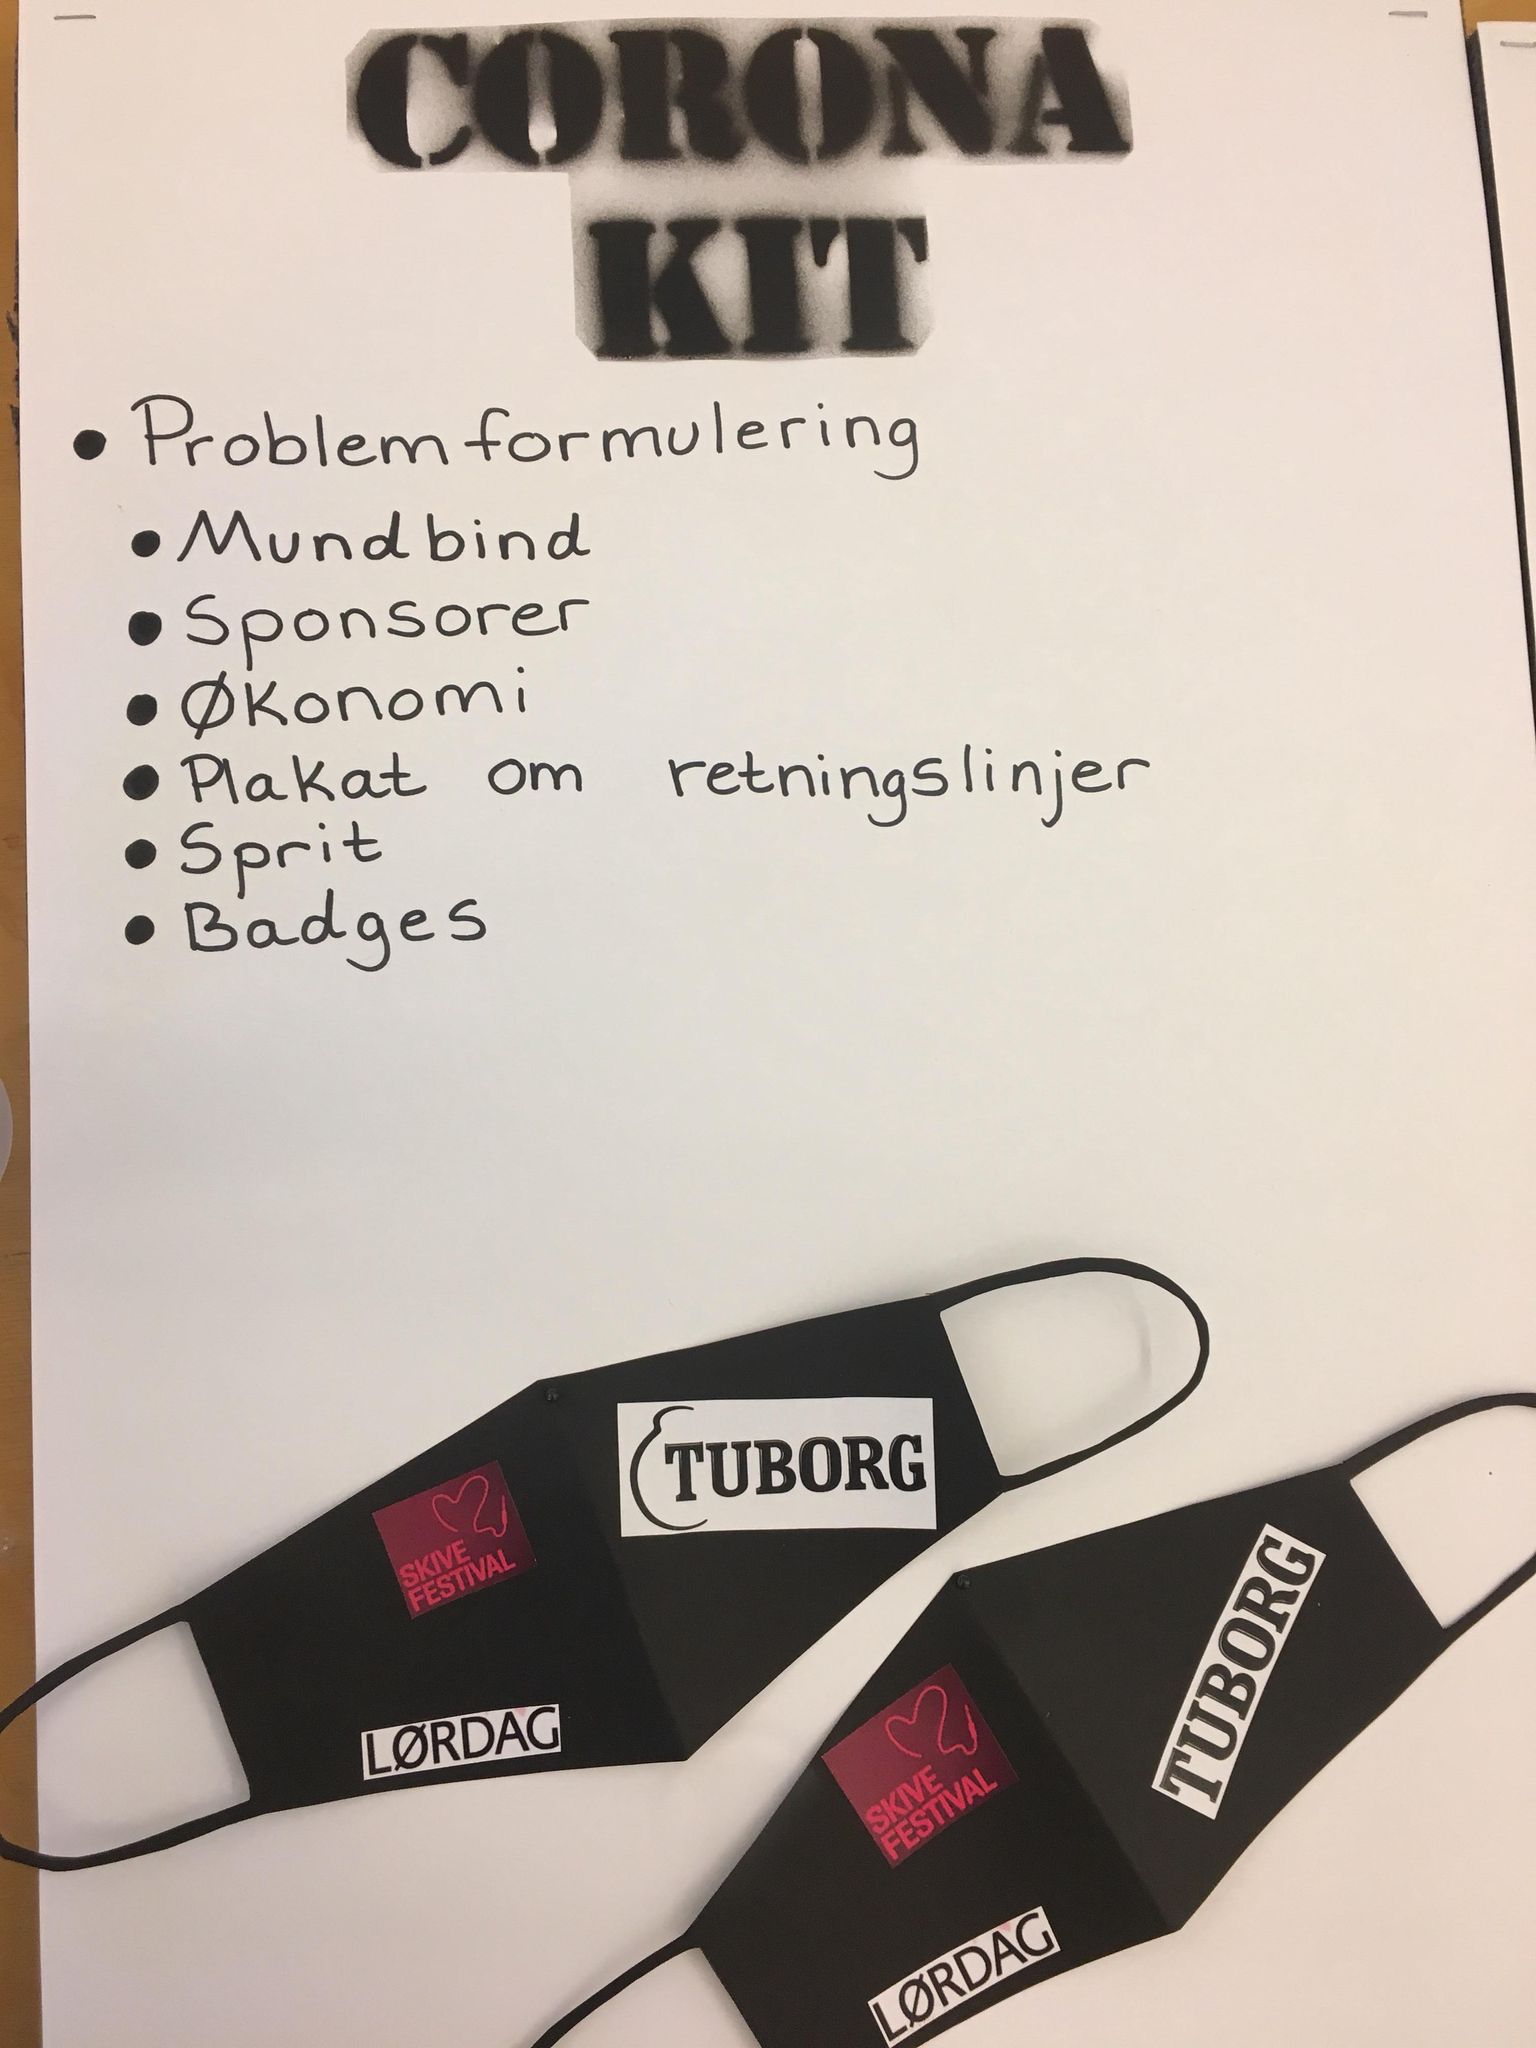 CORONA
KIT
• Problemformulering
• Mundbind
• Sponsorer
• Økonomi
• Plakat om retningslinjer
• Sprit
• Badges
TUBORG
SKIVE
FESTIVAL
LØRDAG
TUBORG
SKIVE
FESTIVAL
LØRDAG